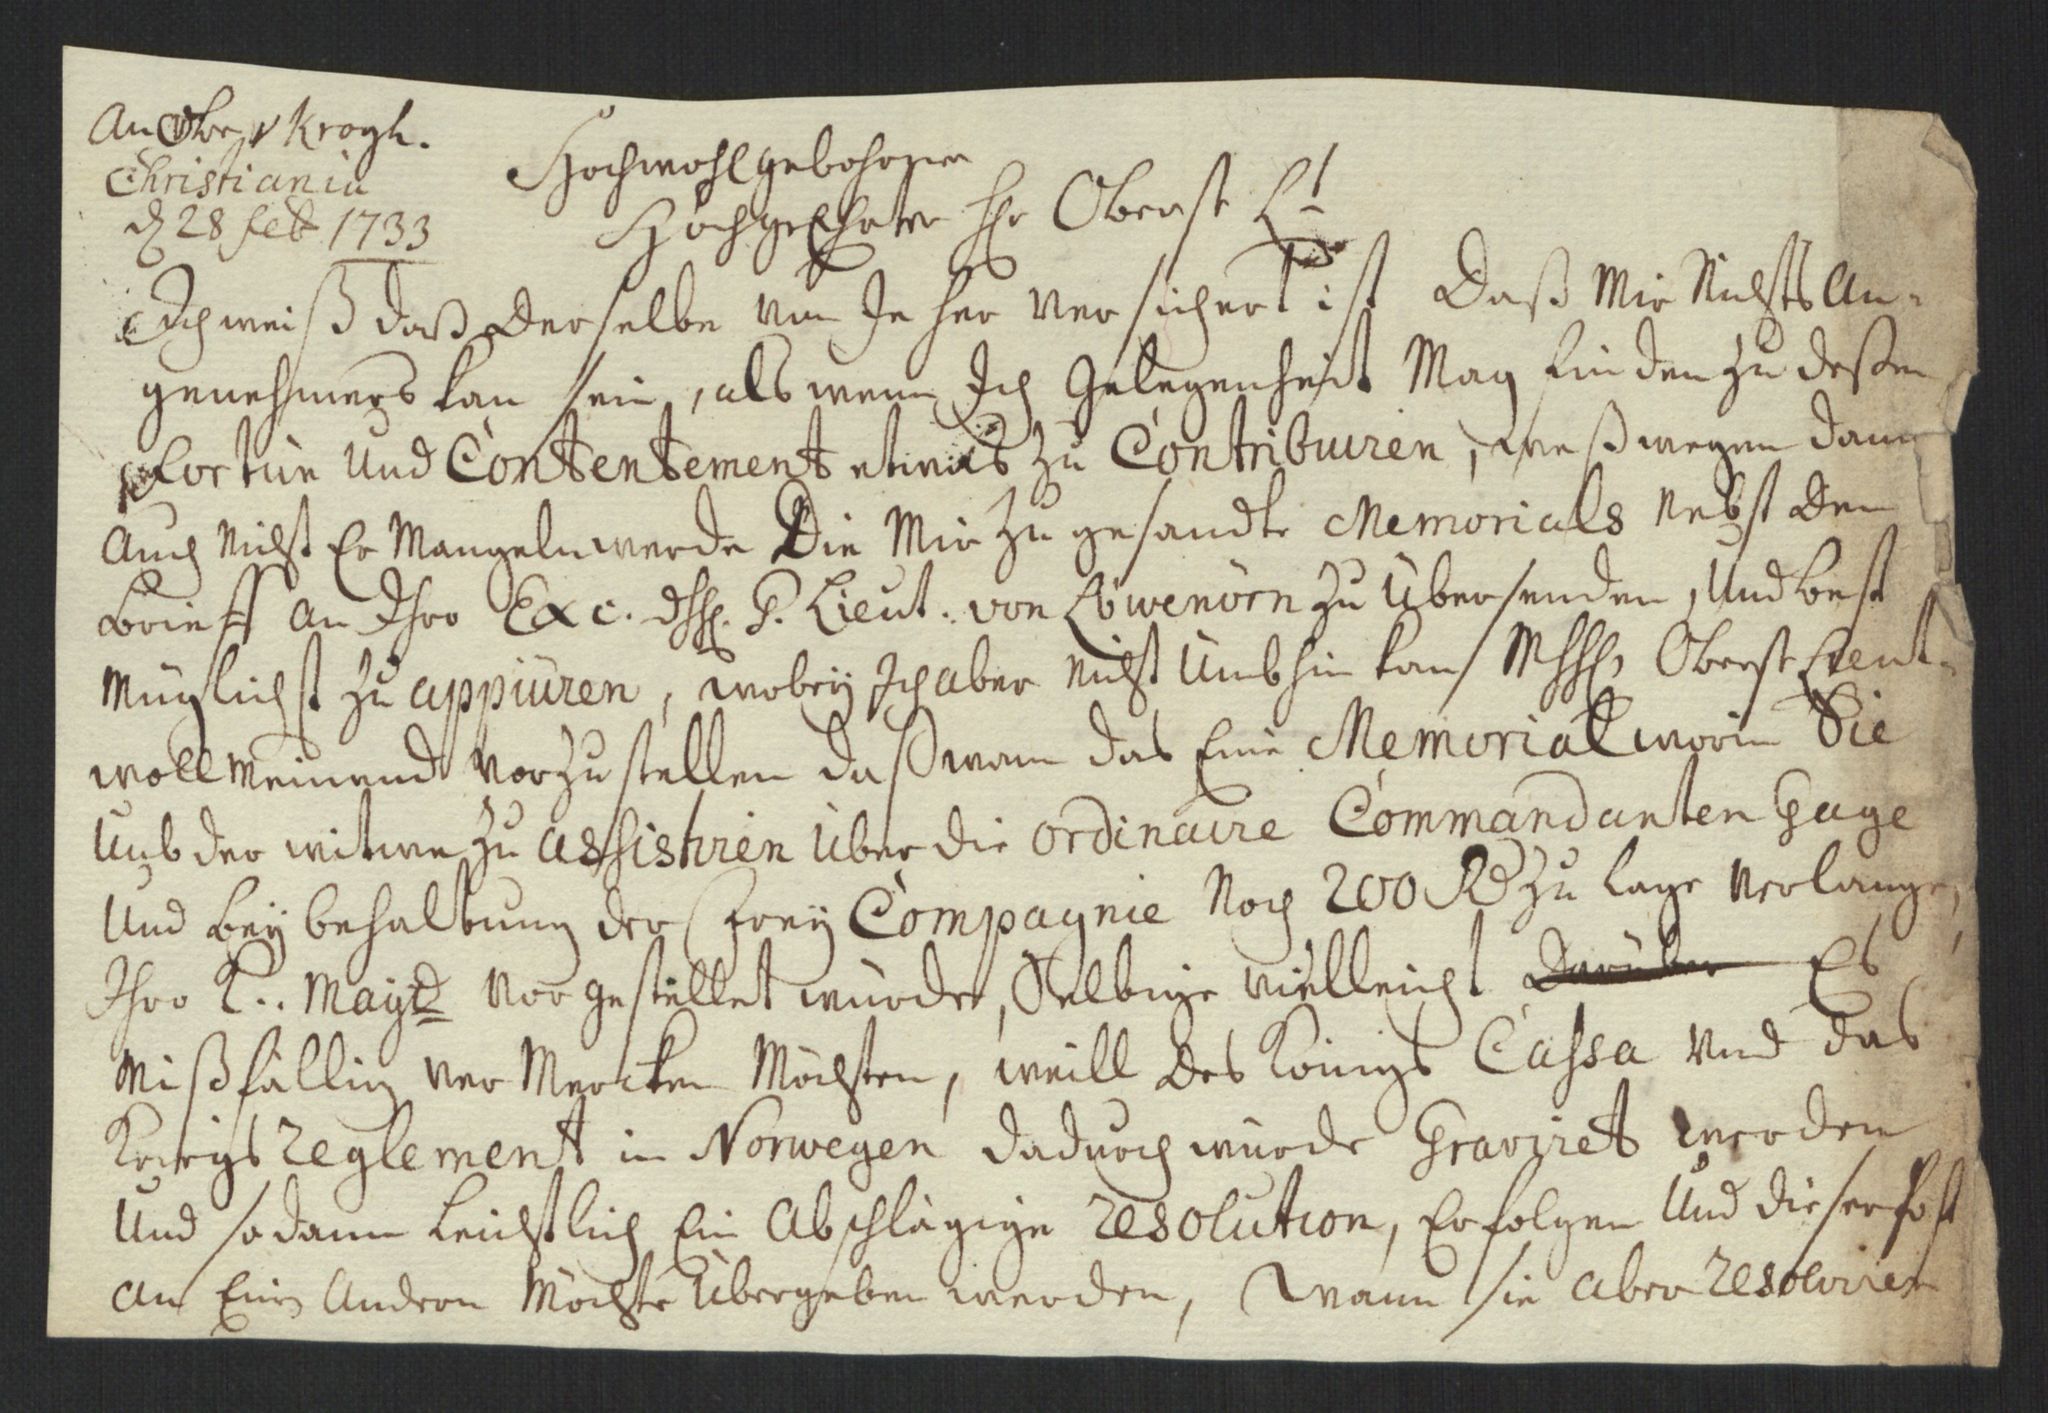 An Obr v Krogh.
Christiania
d 28 feb 1733
Hochwohlgebohrner
Hochgeehrter Hr Oberst Lt
Ich weiß daß Derselbe von Je her versichert ist Daß Mir Nichts An-
genehmers kan sein, als wenn Ich Gelegenheit Mag finden zu deßen
Fortun und Contentement etwas zu Contribuiren, weßwegen dann
Auch Nicht Er Mangeln werde Die Mir zu gesandte Memorials Nebst Dem
Brieff an Ihro Exc. G. Lieut. von Löwenörn zu übersenden, Und best
Müglichst zu appuiren, wobey Ich aber Nicht Umbhin kan Oberst Lieut-
wollmeinend vorzustellen daß wann das Eine Memorial worin Sie
Umb der witwe zu assistiren Uber die ordinaire Commandanten Gage
Und Beybehaltung der Frey Compagnie Noch 200 Rd zu lage verlange,
Ihro K. Mayt vorgestellet würde, Selbige vielleicht Darüber Es
Mißfällig ver Mercken Möchten, weill Des Königs Cassa Und das
Kriegs reglement in Norwegen dadurch würde Graviret werden
Und sodann Leichtlich Ein Abschlägige resolution, Erfolgen Und dieser Post
An Einen Andern Möchte Übergeben werden, wann sie aber resolviren